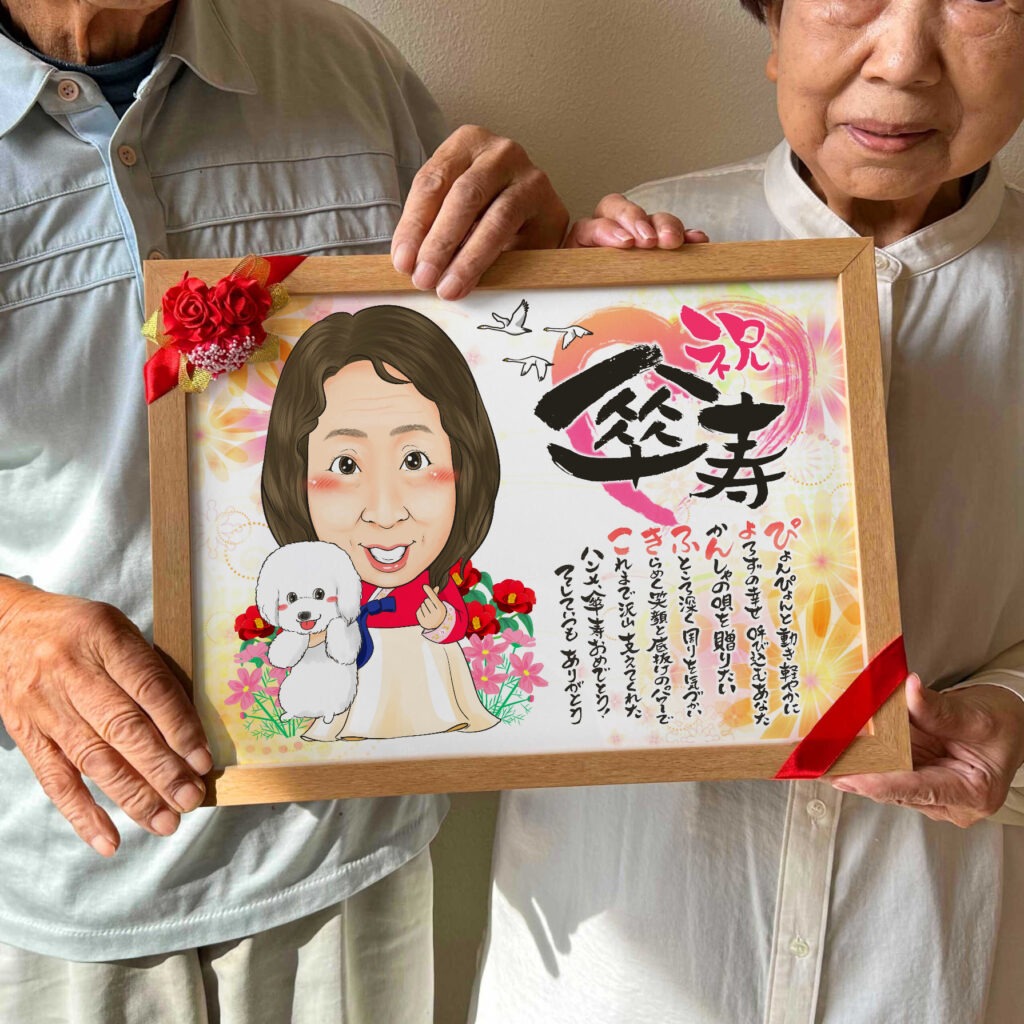 祝
傘寿
ぴょんぴょんと動き軽やかに
よろずの幸せ呼び込むあなた
かんしゃの唄を贈りたい
ふところ深く周りを気づかい
きらめく笑顔と底抜けのパワーで
これまで沢山支えてくれた
ハンメ傘寿おめでとう!
そしていつもありがとう